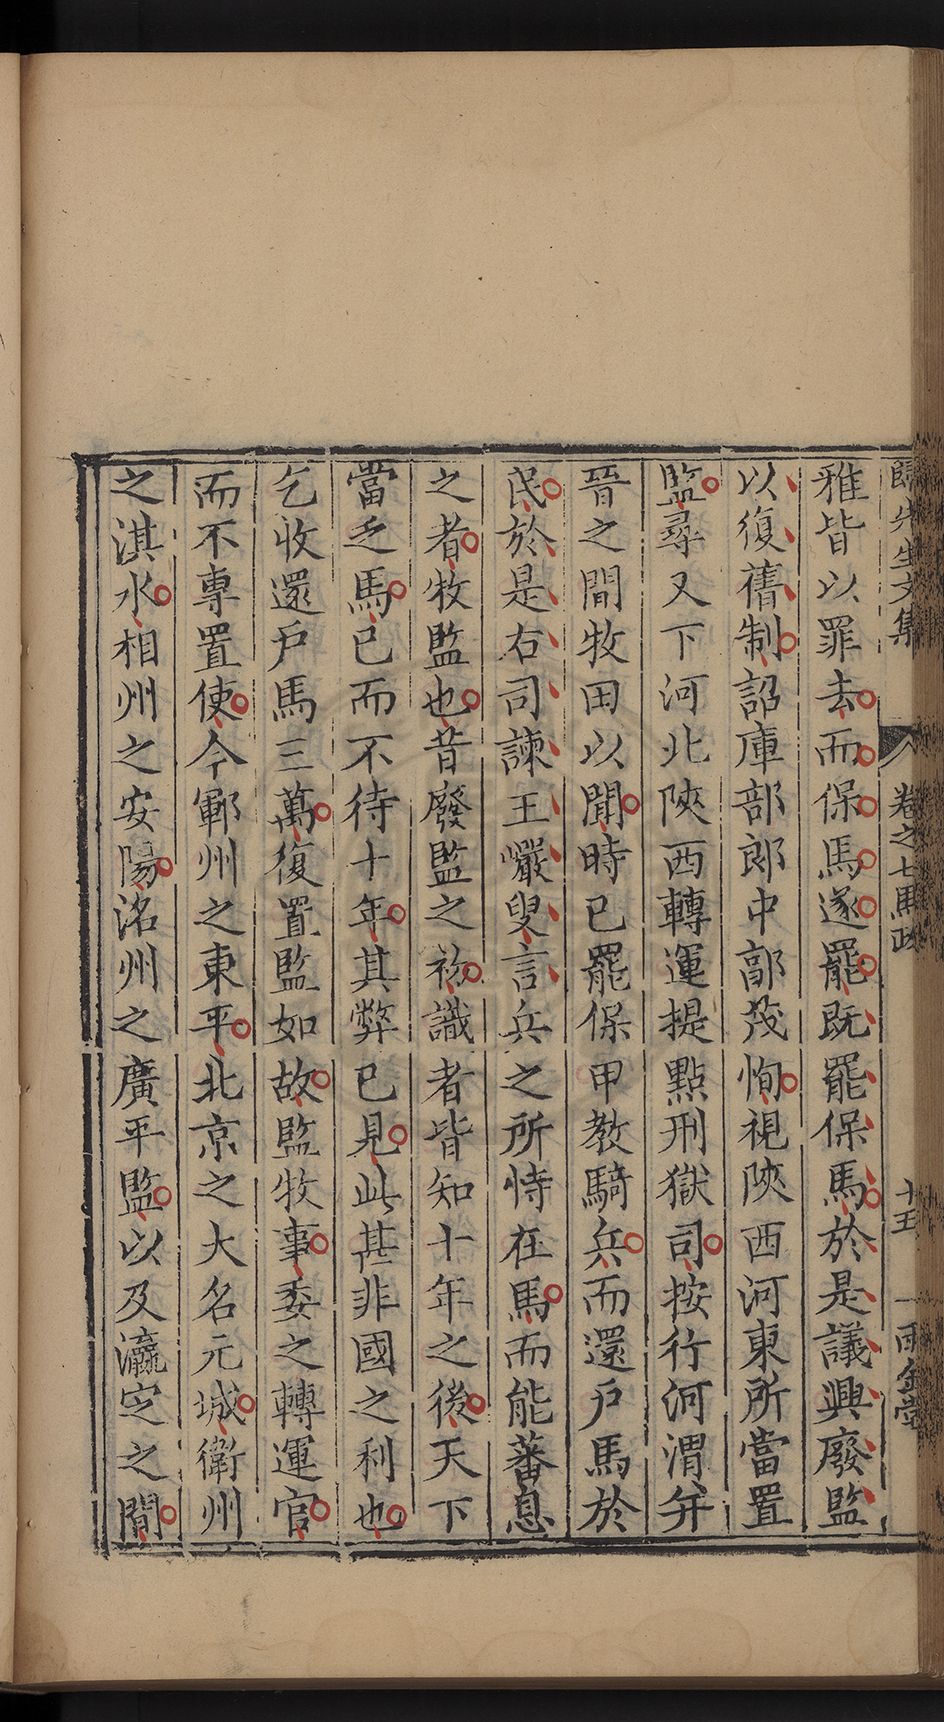 歸先生文集 卷之七馬政 十五 雨金堂
雅皆以罪去而保馬遂罷既罷保馬於是議興廢監
以復舊制詔庫部郎中郭茂恂視陝西河東所當置
監尋又下河北陝西轉運提點刑獄司按行河渭并
晉之間牧田以聞時已罷保甲教騎兵而還戶馬於
民於是右司諫王巖叟言兵之所恃在馬而能蕃息
之者牧監也昔廢監之初識者皆知十年之後天下
當乏馬已而不待十年其弊已見此甚非國之利也
乞收還戶馬三萬復置監如故監牧事委之轉運官
而不專置使今鄆州之東平北京之大名元城衛州
之淇水相州之安陽洺州之廣平監以及瀛定之間